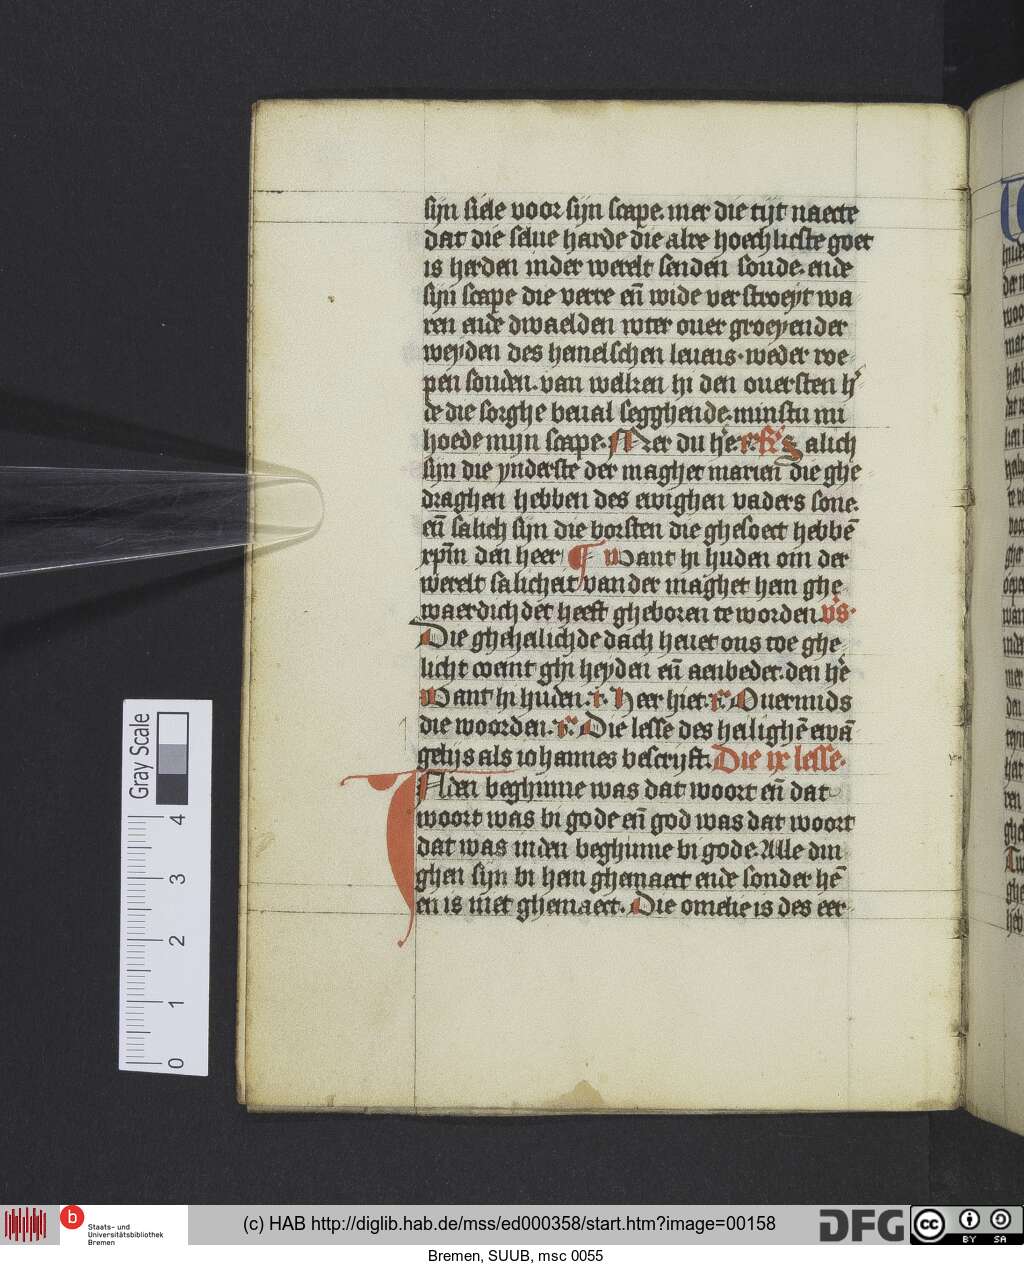 sijn siele voor sijn scape. mer die tijt naecte
dat die selue harde die alre hoechlicste goet
is herden inder werelt senden soude. ende
sijn scape die verre eñ wide ver stroeyt wa
ren ende dwaelden wter ouer groeyender
weyden des hemelschen leuens. weder roe
pen souden. van welken hi den ouersten h'
de die sorghe beual segghende. minstu mi
hoede mijn scape. Mer du h'e r. s alich
sijn die ynderste der maghet marien die ghe
draghen hebben des ewighen vaders sone.
eñ salich sijn die borsten die ghesoect hebbē
xpm̄ den heer ¶ Want hi huden om der
werelt salicheit vander maghet hem ghe
waerdichdet heeft gheboren te worden. v's.
Die ghehalichde dach heuet ons toe ghe
licht coemt ghi heyden eñ aenbedet. den h'e
Want hi huden. r. Heer hier. r. Ouermids
die woorden. r. Die lesse des heilighē ewā
gelijs als iohannes bescrijft. Die ix lesse.
INden beghinne was dat woort eñ dat
woort was bi gode eñ god was dat woort
dat was inden beghinne bi gode. Alle din
ghen sijn bi hem ghemaect ende sonder hē
en is niet ghemaect. Die omelie is des eer
Gray Scale
4
3
2
1
0
b Staats- und
Universitätsbibliothek
Bremen
(c) HAB http://diglib.hab.de/mss/ed000358/start.htm?image=00158
DFG
cc BY SA
Bremen, SUUB, msc 0055